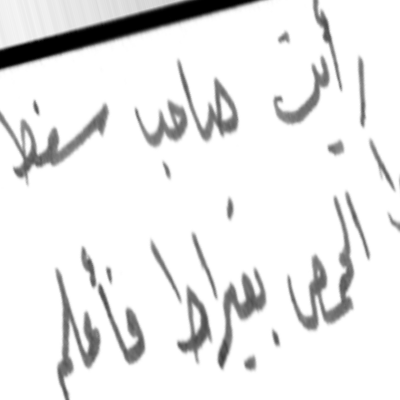 أيت صاحب سفط
الحمص بقيراط فأعلم